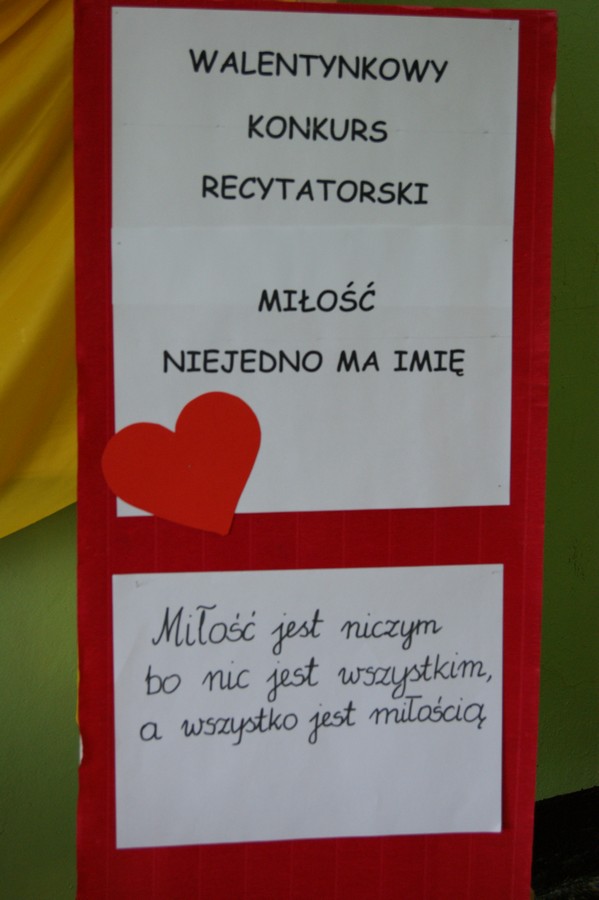 WALENTYNKOWY
KONKURS
RECYTATORSKI
MIŁOŚĆ
NIEJEDNO MA IMIĘ
Miłość jest niczym
bo nic jest wszystkim,
a wszystko jest miłością